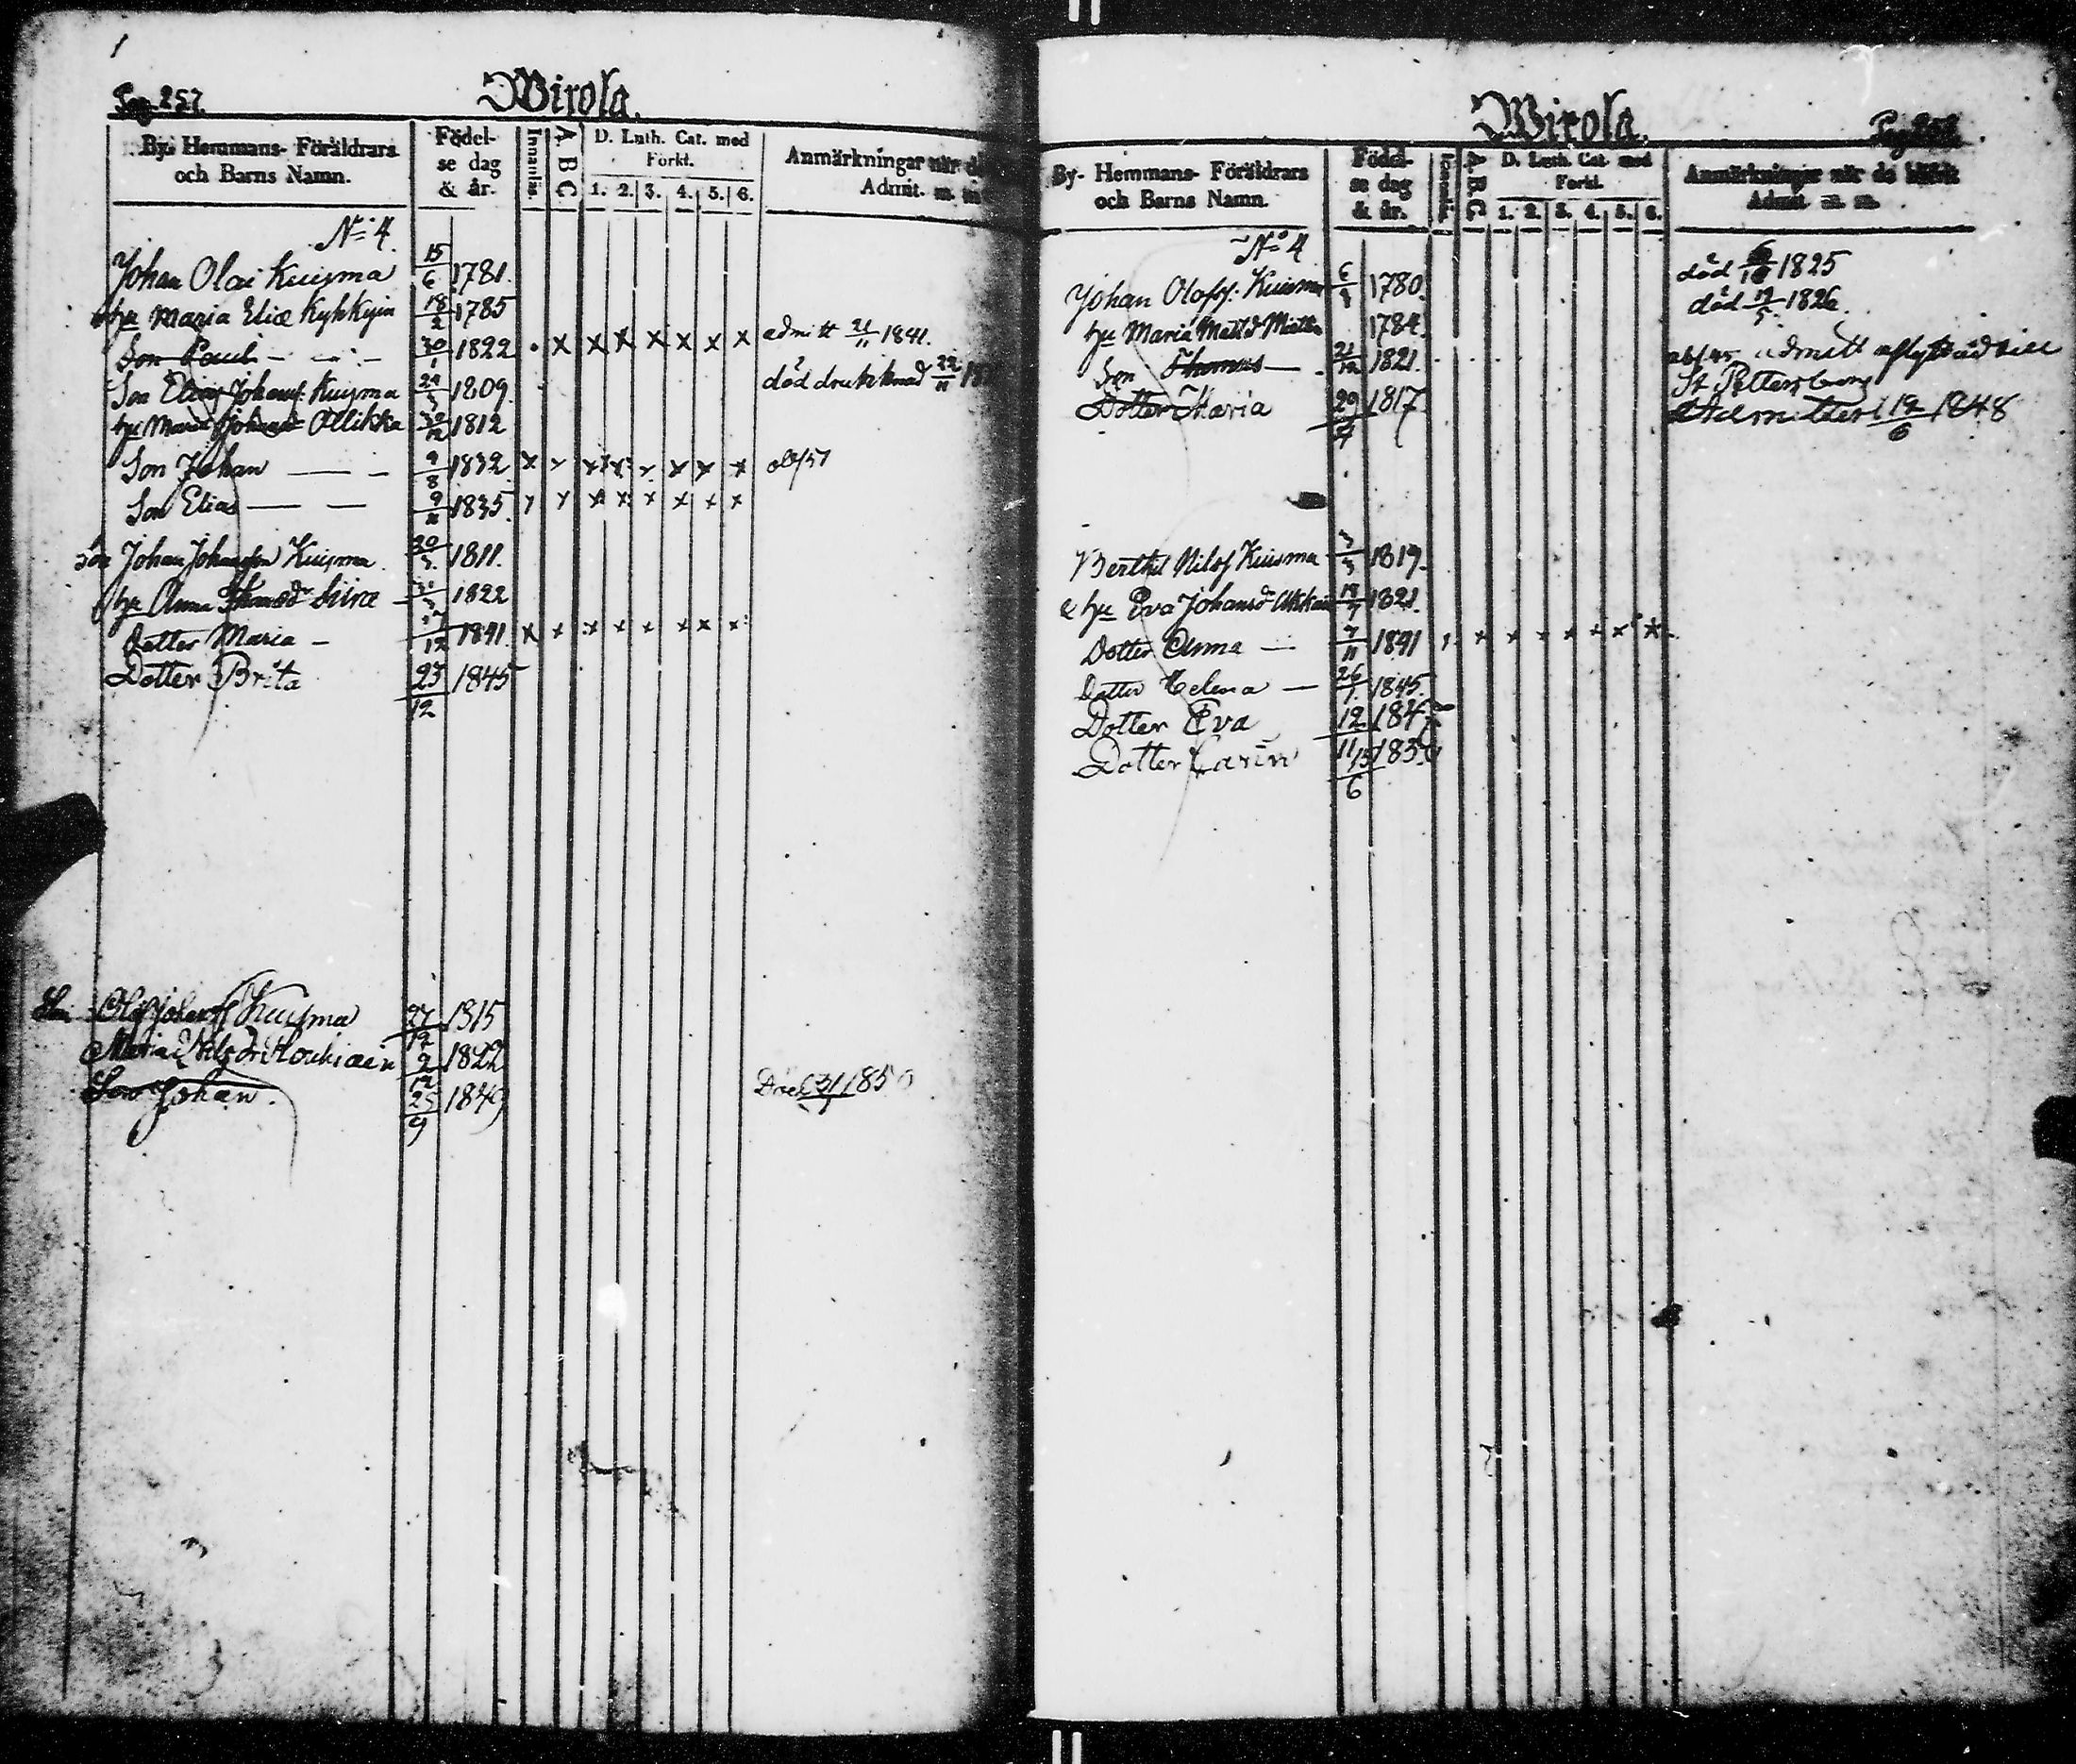 Pag. 257.
Wirola.
By- Hemmans- Föräldrars och Barns Namn.
Födel-se dag & år.
Innanläs.
A. B C
D. Luth. Cat. med Förkl.
1. 2. 3. 4. 5. 6.
Anmärkningar når de
Admit. m. m.
No 4.
Johan Olai Kuisma 15/6 1781.
hu Maria Eliæ Kykkyin 18/2 1785
Son Paul 30/1 1822 . x x x x x x x admitt 21/11 1841.
Son Elias Johans: Kuisma 1809. död drunknad 22/11
hu Maria Johansd Ollikka 1812
Son Johan — — 9/8 1832 x x x x x x x x abs 51
Son Elias — — 1835 x x x x x x x x
Son Johan Johansson Kuisma. 1811.
hu Anna Thomasdr Siiræ 1822
Dotter Maria — 1841. x x x x x x x x
Dotter Brita 23/12 1845
Olof Johans Kuisma 27/12 1815
Maria Nilsdr Houkiain 9/12 1822
Son Johan. 25/9 1849 Död 1850
Wirola.
By- Hemmans- Föräldrars och Barns Namn.
Födel-se dag & år.
Innanläs.
A. B. C
D. Luth. Cat. med Förkl.
1. 2. 3. 4. 5. 6.
Anmärkningar når de blifvit
Admit. m. m.
No 4
Johan Olofs: Kuisma 1780. död 1825
hu Maria Matsd 1784. död 1826.
Son Thomas — 21/12 1821. admitt aflyttad till
St Pettersborg
Dotter Maria 1817 Admitterd 19/6 1848
Berthil Nilss Kuisma 1819.
hu Eva Johansd 1821.
Dotter Anna — 1841
Dotter Helena — 26/1 1845.
Dotter Eva 12/11 184
Dotter Carin 13/6 1850